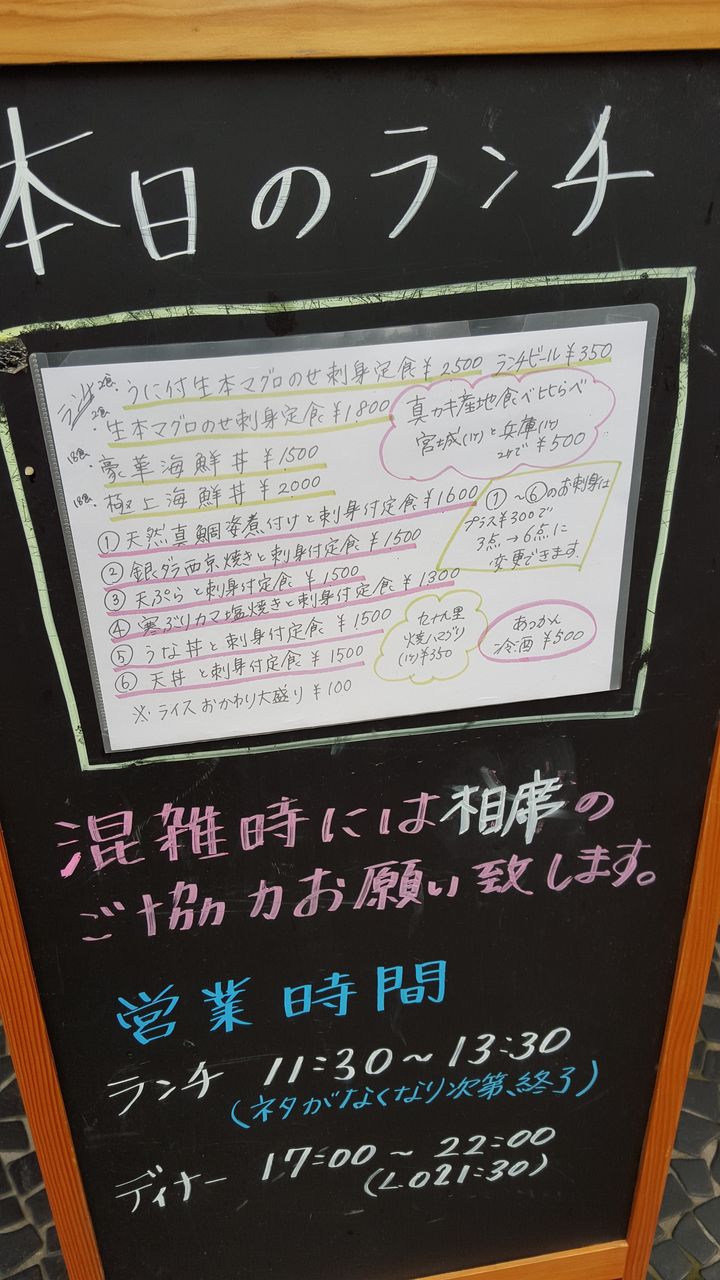 本日のランチ
2食・うに付生本マグロのせ刺身定食¥2500 ランチビール¥350
2食・生本マグロのせ刺身定食¥1800
・豪華海鮮丼¥1500
・極上海鮮丼¥2000
真カキ産地食べ比らべ
宮城(1ケ)と兵庫(1ケ)
2ケで¥500
①天然真鯛姿煮付けと刺身付定食¥1600
②銀ダラ西京焼きと刺身付定食¥1500
③天ぷらと刺身付定食¥1500
④寒ぶりカマ塩焼きと刺身付定食¥1300
⑤うな丼と刺身付定食¥1500
⑥天丼と刺身付定食¥1500
※ライスおかわり大盛り¥100
①〜⑥のお刺身は
プラス¥300で
3点→6点に
変更できます
九十九里
焼ハマグリ
(1ケ)¥350
あつかん
冷酒¥500
混雑時には相席の
ご協力お願い致します。
営業時間
ランチ 11:30〜13:30
(ネタがなくなり次第、終了)
ディナー 17:00〜22:00
(LO21:30)